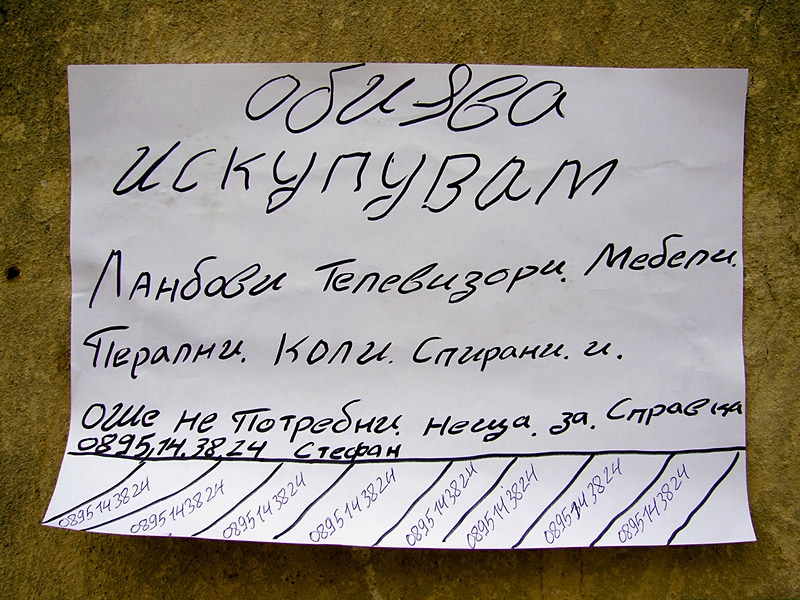 Обизва
Искупувам
Ланбови Телевизори. Мебели.
Перални. Коли. Спирани. и.
Оше не Потребни. неща. за. Справка
0895,14.38,24 Стефан
0895143824
0895143824
0895143824
0895143824
0895143824
0895143824
0895143824
0895143824